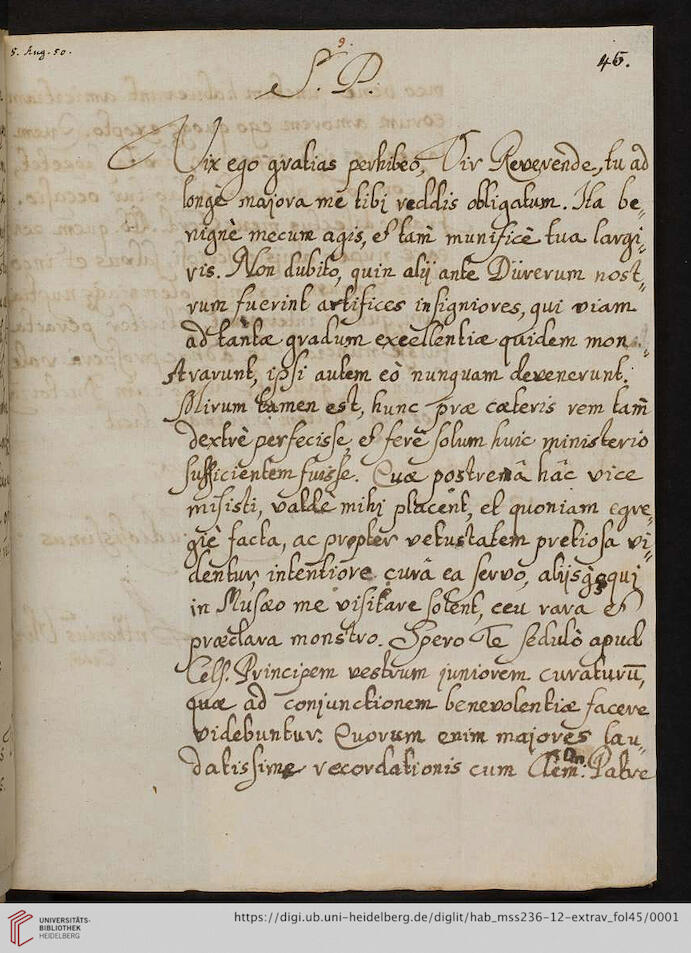 5. Aug. 50.
9.
45.
S. P.
Vix ego gratias perhibeo, Vir Reverende, tu ad
longè majora me tibi reddis obligatum. Ita be„
nignè mecum agis, et tam munificè tua largi„
ris. Non dubito, quin alij ante Dürerum nost„
rum fuerint artifices insigniores, qui viam
ad tantæ gradum excellentiæ quidem mon„
strarunt, ipsi autem eò nunquam devenerunt.
Mirum tamen est, hunc præ cæteris rem tam
dextrè perfecisse, et ferè solum huic ministerio
sufficientem fuisse. Quæ postremâ hâc vice
misisti, valdè mihi placent, et quoniam egre„
giè facta, ac propter vetustatem pretiosa vi„
dentur, intentiore curâ ea servo, alijsq; qui
in Musæo me visitare solent, ceu rara et
præclara monstro. Spero Te sedulò apud
Cels. Principem vestrum juniorem curaturū,
quæ ad conjunctionem benevolentiæ facere
videbuntur: Quorum enim majores lau„
datissimæ recordationis cum Clem: Dn. Patre
UNIVERSITÄTS-
BIBLIOTHEK
HEIDELBERG
https://digi.ub.uni-heidelberg.de/diglit/hab_mss236-12-extrav_fol45/0001